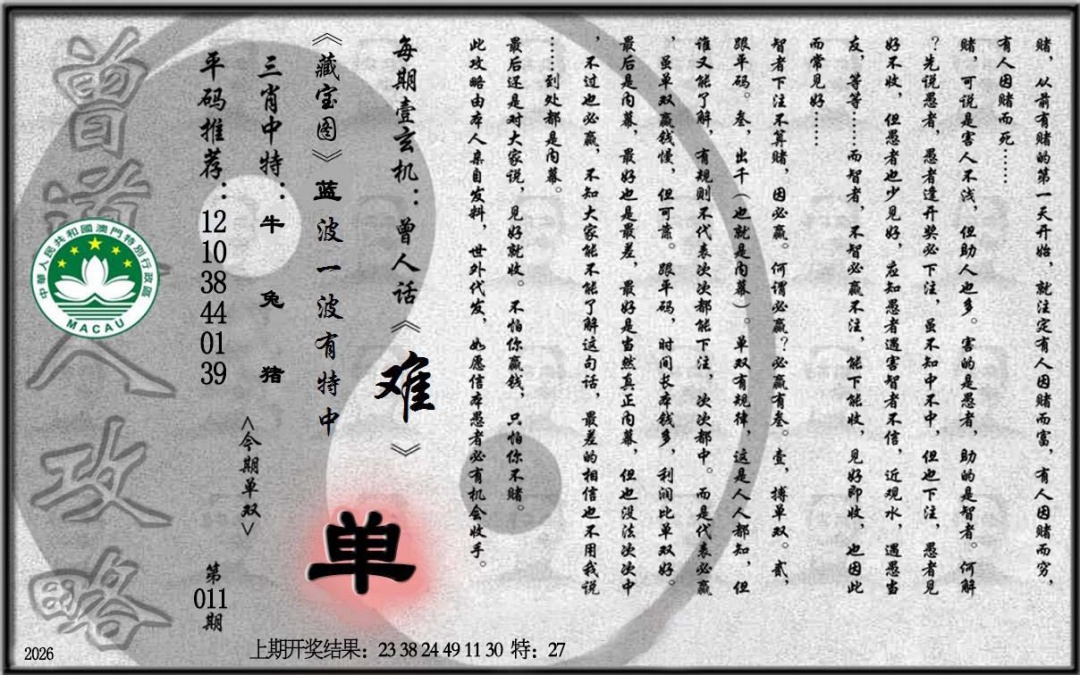 赌，从前有赌的第一天开始，就注定有人因赌而富，有人因赌而穷，
有人因赌而死……
赌，可说是害人不浅，但助人也多。害的是愚者，助的是智者。何解
？先说愚者，愚者逢开奖必下注，虽不知中不中，但也下注，愚者见
好不收，但愚者也少见好，应知愚者遇害智者不信，近观水，遇愚当
友，等等……而智者，不智必赢不注，能下能收，见好即收，也因此
而常见好……
智者下注不算赌，因必赢。何谓必赢？必赢有叁。壹，搏单双。贰，
跟平码。叁，出千（也就是内幕）。单双有规律，这是人人都知，但
谁又能了解，有规则不代表次次都能下注，次次都中。而是代表必赢
，虽单双赢钱慢，但可靠。跟平码，时间长本钱多，利润比单双好。
最后是内幕，最好也是最差，最好是当然真正内幕，但也没法次次中
，不过也必赢，不知大家能不能了解这句话，最差的相信也不用我说
……到处都是内幕。
最后还是对大家说，见好就收。不怕你赢钱，只怕你不赌。
此攻略由本人亲自发料，世外代发，如愿信本愚者必有机会收手。
每期壹玄机：曾人话《难》
《藏宝图》蓝波一波有特中
单
三肖中特：牛 兔 猪
<今期单双>
平码推荐：12 10 38 44 01 39
第011期
曾道人攻略
中華人民共和國澳門特別行政區
MACAU
2026
上期开奖结果：23 38 24 49 11 30 特：27